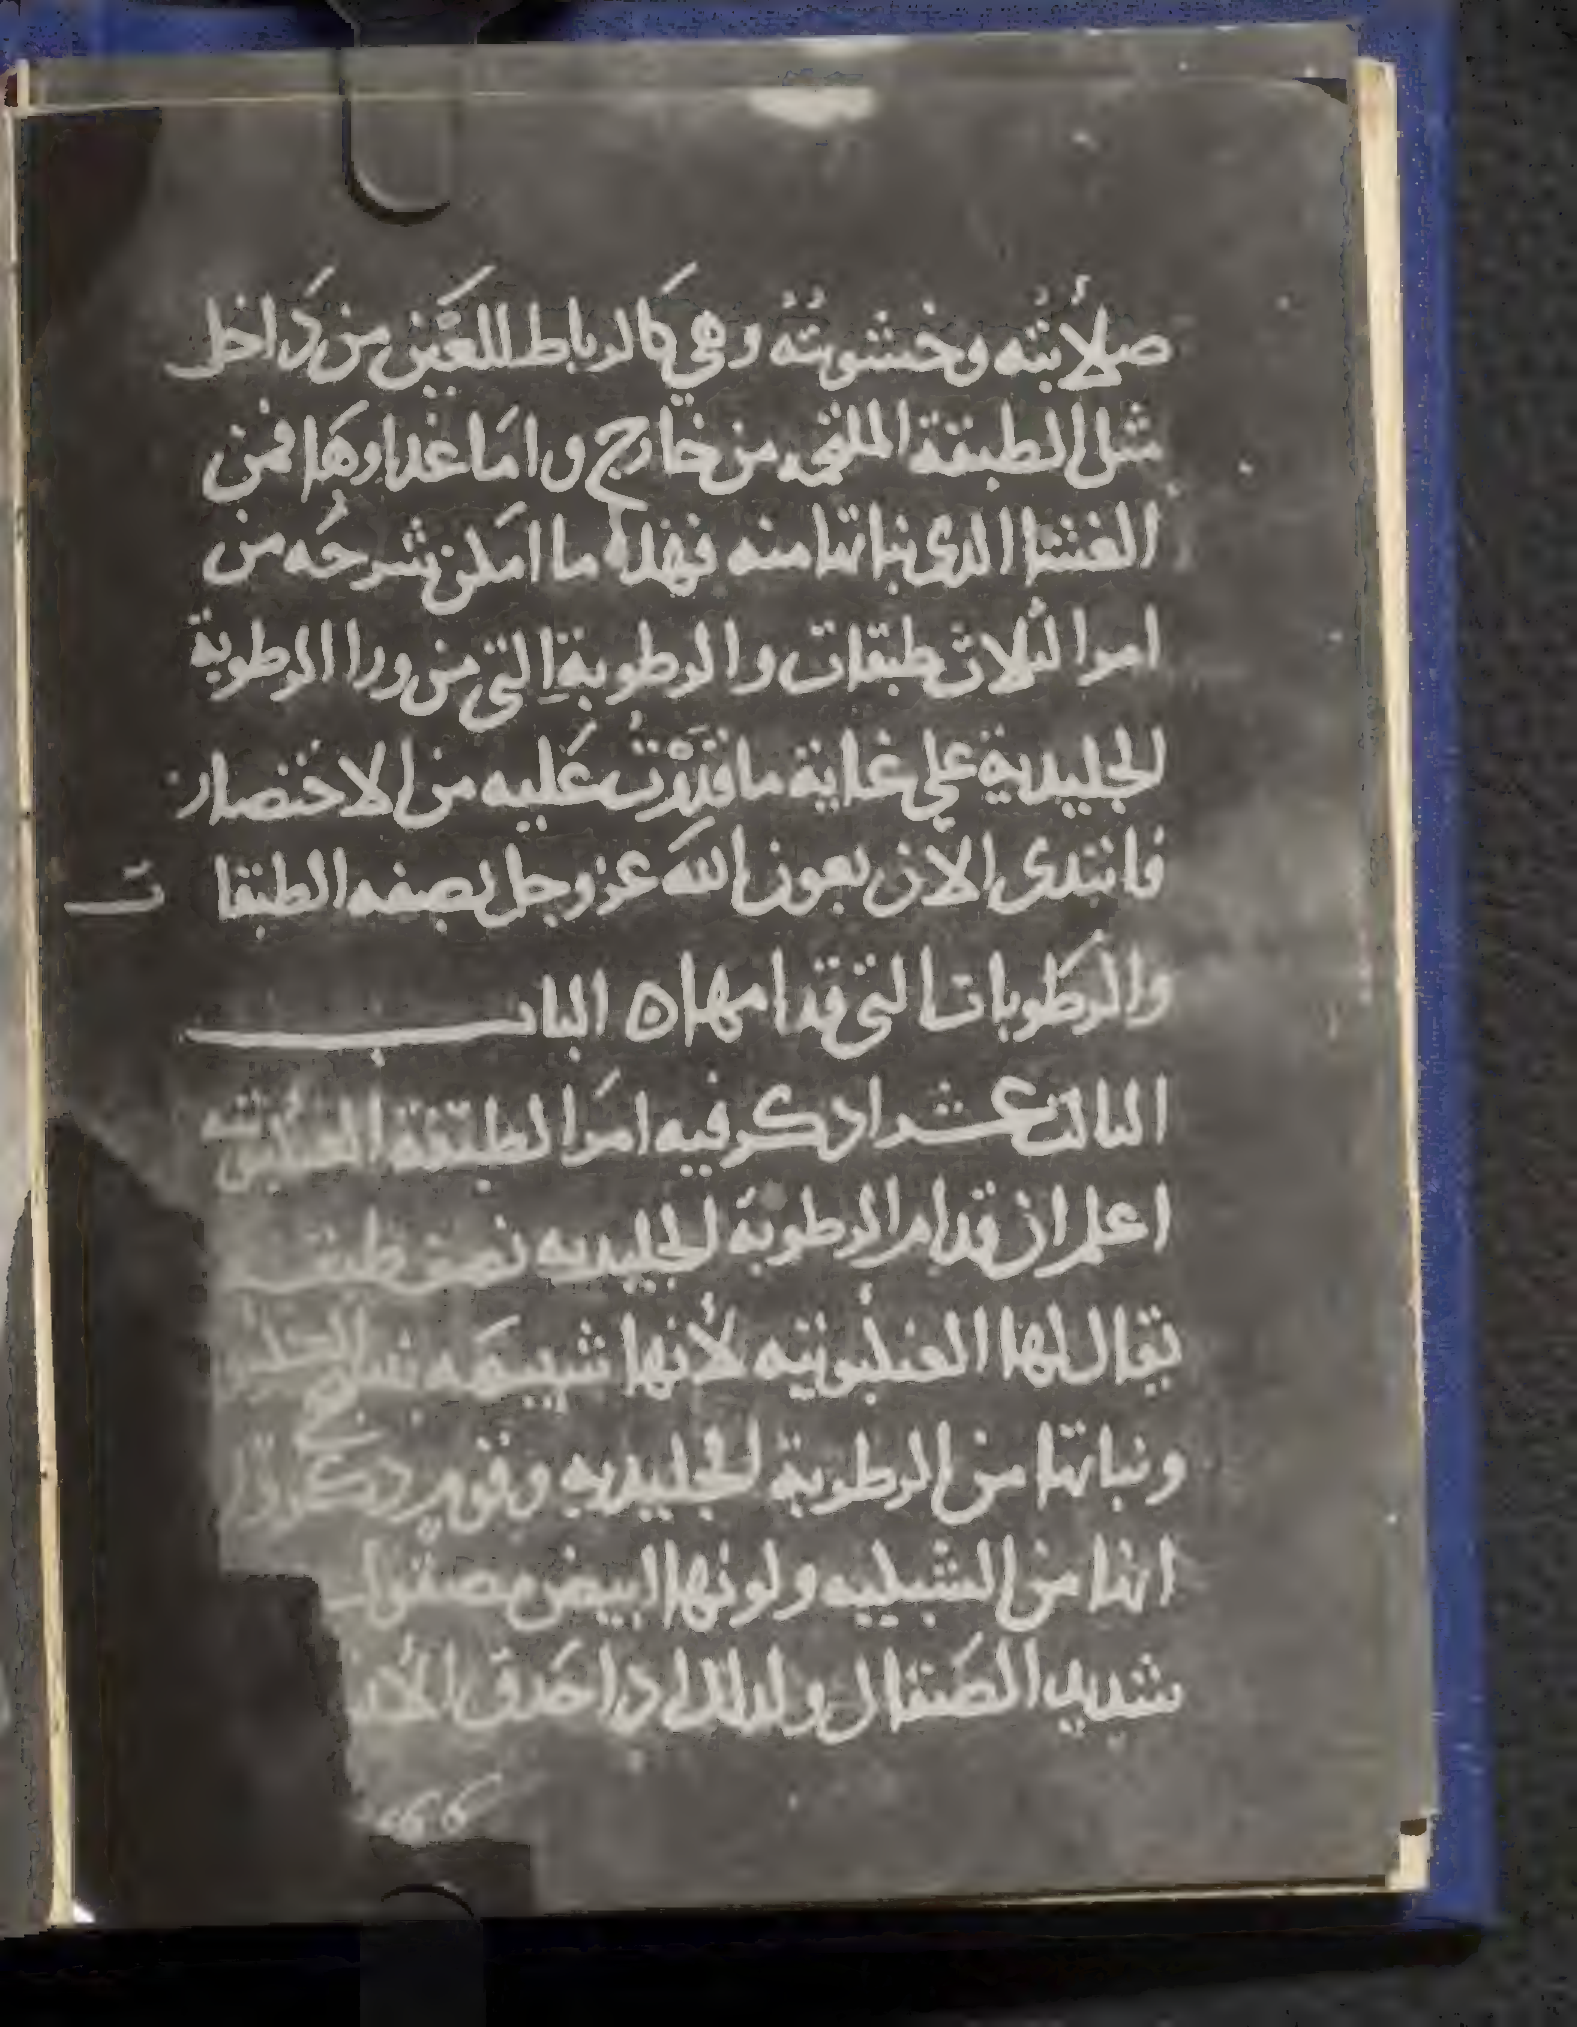 صلابته وخشونته وهي كالرباط للعين من داخل
مثل الطبقة الملتحم من خارج واما غداوها فمن
الغشا الدى نباتها منه فهده ما امكن شرحه من
امر الثلاث طبقات والرطوبة التي من ورا الرطوبة
الجليدية على غاية ما قدرت عليه من الاختصار
فابتدى الان بعون الله عز وجل بصفه الطبقات
والرطوبات التي قدامها ه الباب
الثالث عشر ادكر فيه امر الطبقة العنكبوتيه
اعلم ان قدام الرطوبة الجليديه نصف طبقه
يقال لها العنكبوتيه لانها شبيهه بنسج
ونباتها من الرطوبة الجليديه وقوم دكروا
انها من الشبكيه ولونها ابيض مصقول
شديد الصقال ولدلك ادا حدق